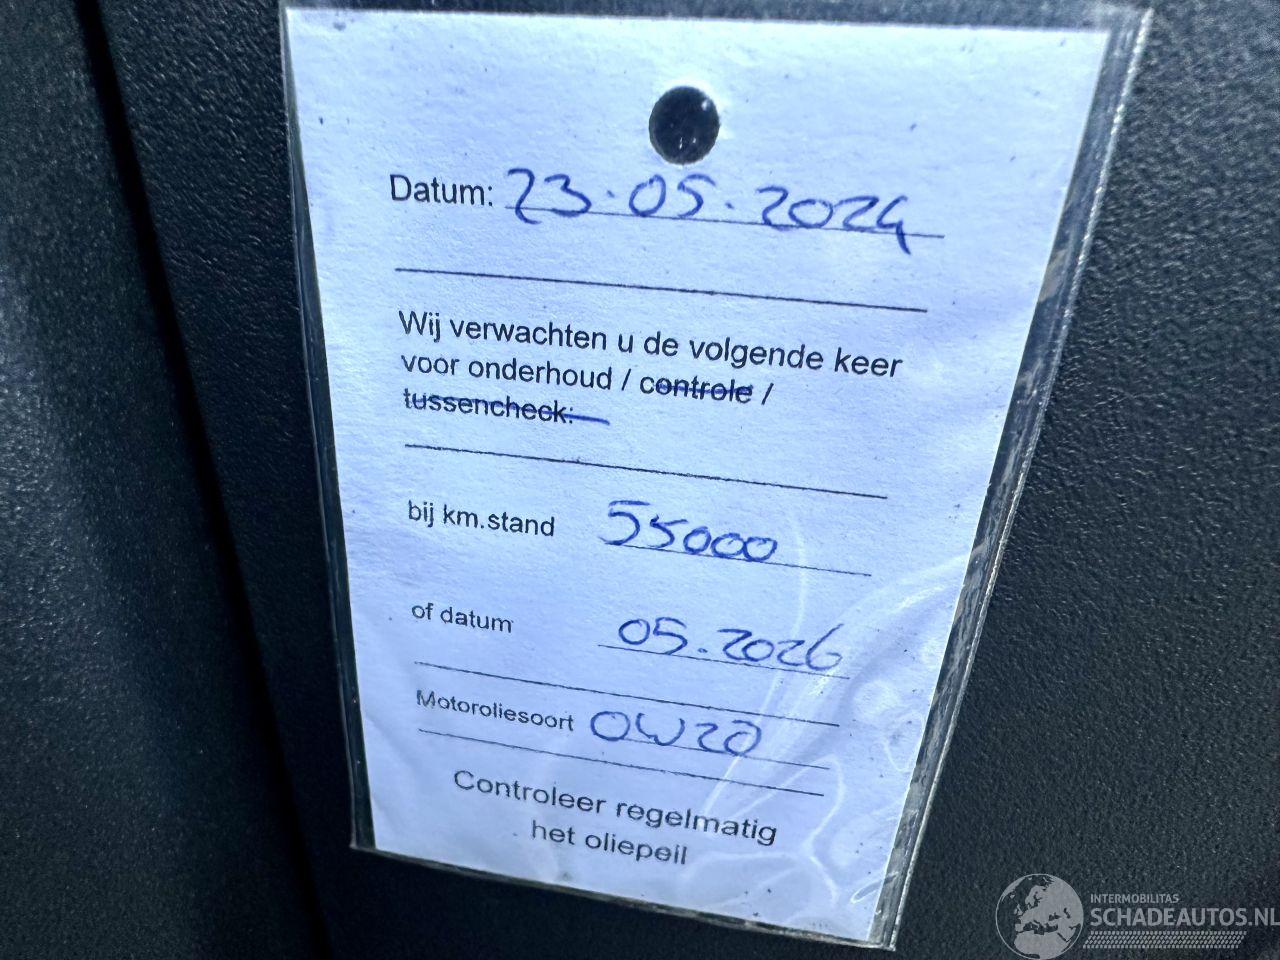 Datum: 23.05.2024
Wij verwachten u de volgende keer
voor onderhoud / controle /
tussencheck:
bij km.stand 55000
of datum 05.2026
Motoroliesoort 0W20
Controleer regelmatig
het oliepeil
INTERMOBILITAS
SCHADEAUTOS.NL